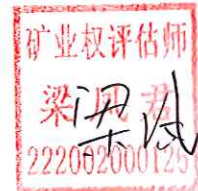 矿业权评估师
梁凤君
222002000126